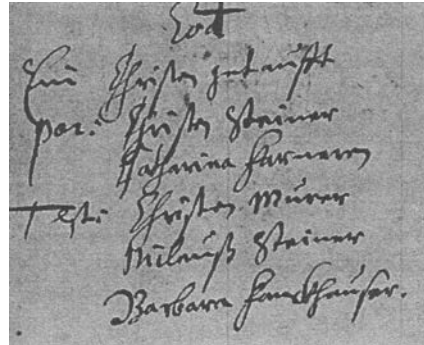 Eod
Ein Christen getaufft
par: Christen Steiner
Catharina Farneren
Test: Christen Murer
Niclauß Steiner
Barbara Fanckhauser.